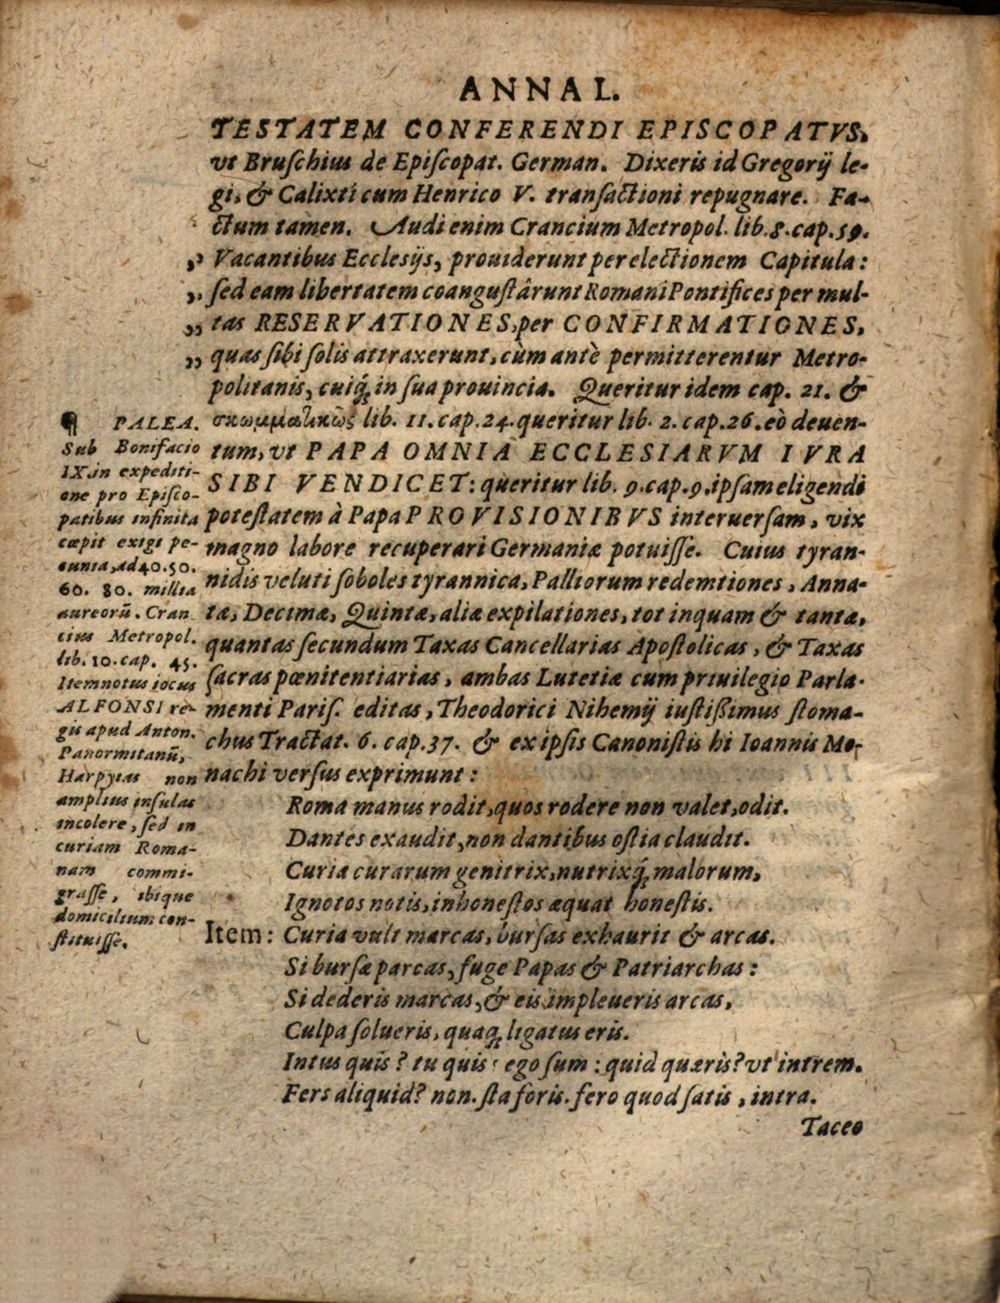 ANNAL.
TESTATEM CONFERENDI EPISCOPATVS,
vt Bruſchius de Epiſcopat. German. Dixeris id Gregorij le-
gi, & Calixti cum Henrico V. tranſactioni repugnare. Fa-
ctum tamen. Audi enim Crancium Metropol. lib. 8. cap. 59.
„ Vacantibus Ecclesijs, prouiderunt per electionem Capitula:
„ ſed eam libertatem coanguſtârunt Romani Pontifices per mul-
„ tas RESERVATIONES, per CONFIRMATIONES,
„ quas ſibi ſolis attraxerunt, cùm antè permitterentur Metro-
politanis, cuiq́; in ſua prouincia. Queritur idem cap. 21. &
σκωμματικῶς lib. 11. cap. 24. queritur lib. 2. cap. 26. eò deuen-
tum, vt PAPA OMNIA ECCLESIARVM IVRA
SIBI VENDICET: queritur lib. 9. cap. 9. ipſam eligendi
poteſtatem à Papa PROVISIONIBVS interuerſam, vix
magno labore recuperari Germaniæ potuiſſe. Cuius tyran-
nidis veluti ſoboles tyrannica, Palliorum redemtiones, Anna-
tæ, Decimæ, Quintæ, aliæ expilationes, tot inquam & tantæ,
quantas ſecundum Taxas Cancellarias Apoſtolicas, & Taxas
ſacras pœnitentiarias, ambas Lutetiæ cum priuilegio Parla-
menti Pariſ. editas, Theodorici Nihemij iuſtißimus ſtoma-
chus Tractat. 6. cap. 37. & ex ipſis Canoniſtis hi Ioannis Mo-
nachi verſus exprimunt:
Roma manus rodit, quos rodere non valet, odit.
Dantes exaudit, non dantibus oſtia claudit.
Curia curarum genitrix, nutrixq́; malorum,
Ignotos notis, inhoneſtos æquat honeſtis.
Item: Curia vult marcas, burſas exhaurit & arcas.
Si burſæ parcas, fuge Papas & Patriarchas:
Si dederis marcas, & eis impleueris arcas,
Culpa ſolueris, quaq́; ligatus eris.
Intus quis? tu quis? ego ſum: quid quæris? vt intrem.
Fers aliquid? non. ſta foris. fero quod ſatis, intra.
Taceo
¶ PALEA.
Sub Bonifacio
IX. in expediti-
one pro Epiſco-
patibus infinita
cœpit exigi pe-
cunia, ad 40. 50.
60. 80. millia
aureorū. Cran
cius Metropol.
lib. 10. cap. 45.
Item notus iocus
ALFONSI re-
gis apud Anton.
Panormitanū,
Harpyias non
amplius inſulas
incolere, ſed in
curiam Roma-
nam commi-
graſſe, ibique
domicilium con-
ſtituiſſe.